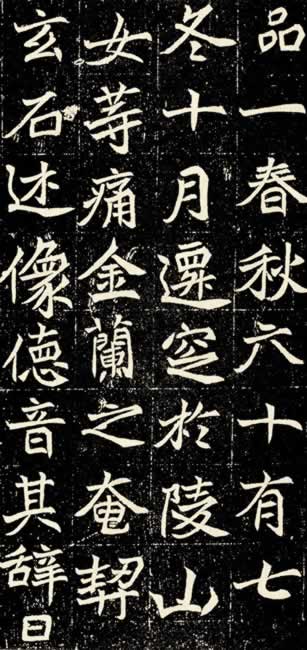 品一春秋六十有七
冬十月遷窆於陵山
女䓁痛金蘭之奄契
玄石述像徳音其辞曰